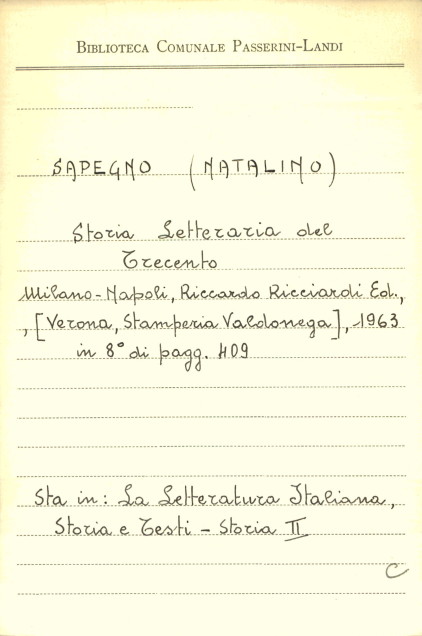 BIBLIOTECA COMUNALE PASSERINI-LANDI
SAPEGNO (NATALINO)
Storia Letteraria del
Trecento
Milano-Napoli, Riccardo Ricciardi Ed.,
, [Verona, Stamperia Valdonega], 1963
in 8° di pagg. 409
Sta in: La Letteratura Italiana,
Storia e Testi - Storia II
C